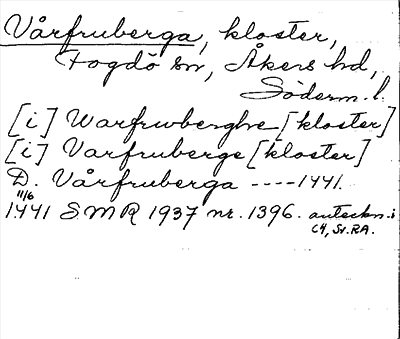 Vårfruberga, kloster,
Fogdö sn, Åkers hd,
Söderm. l.
[i] Warfrwberghe [kloster]
[i] Varfruberge [kloster]
D. Vårfruberga ---- 1441.
11/6
1441 SMR 1937 nr. 1396. anteckn. i
C4, Sv.RA.